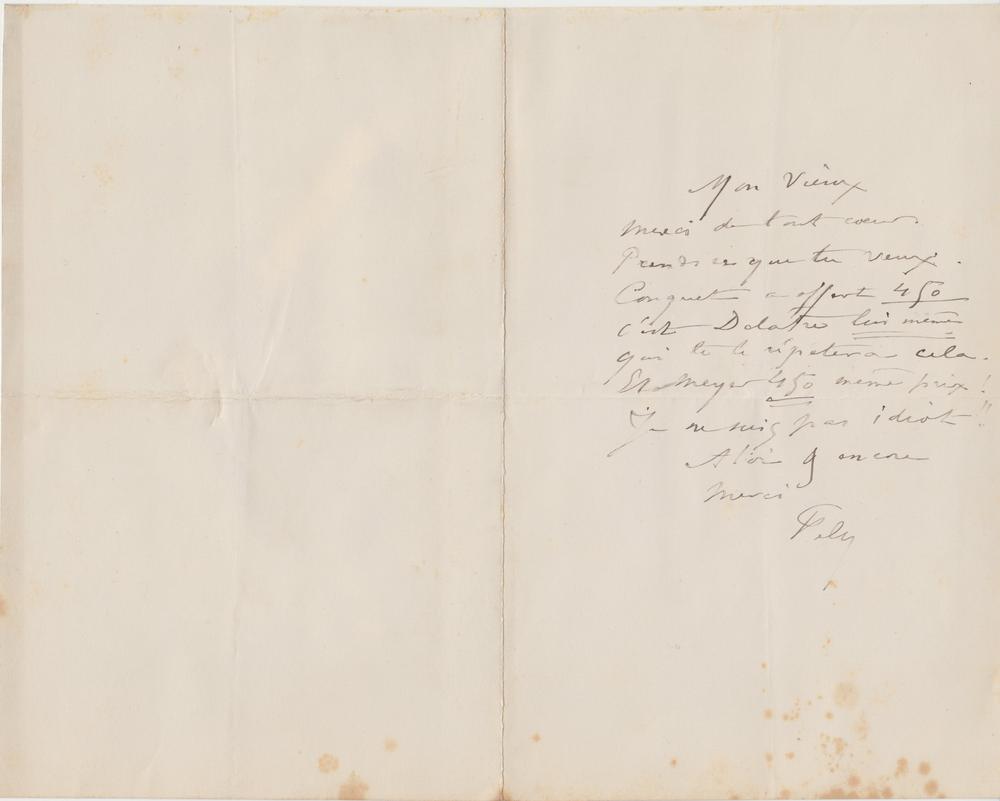 Mon Vieux
Merci de tout cœur.
Prends ce que tu veux.
Conquet a offert 450
c'est Delatre lui même
qui te le répetera cela.
Et Meyer 450 même prix !
Je ne suis pas idiot !!
A toi & encore
Merci
Fély